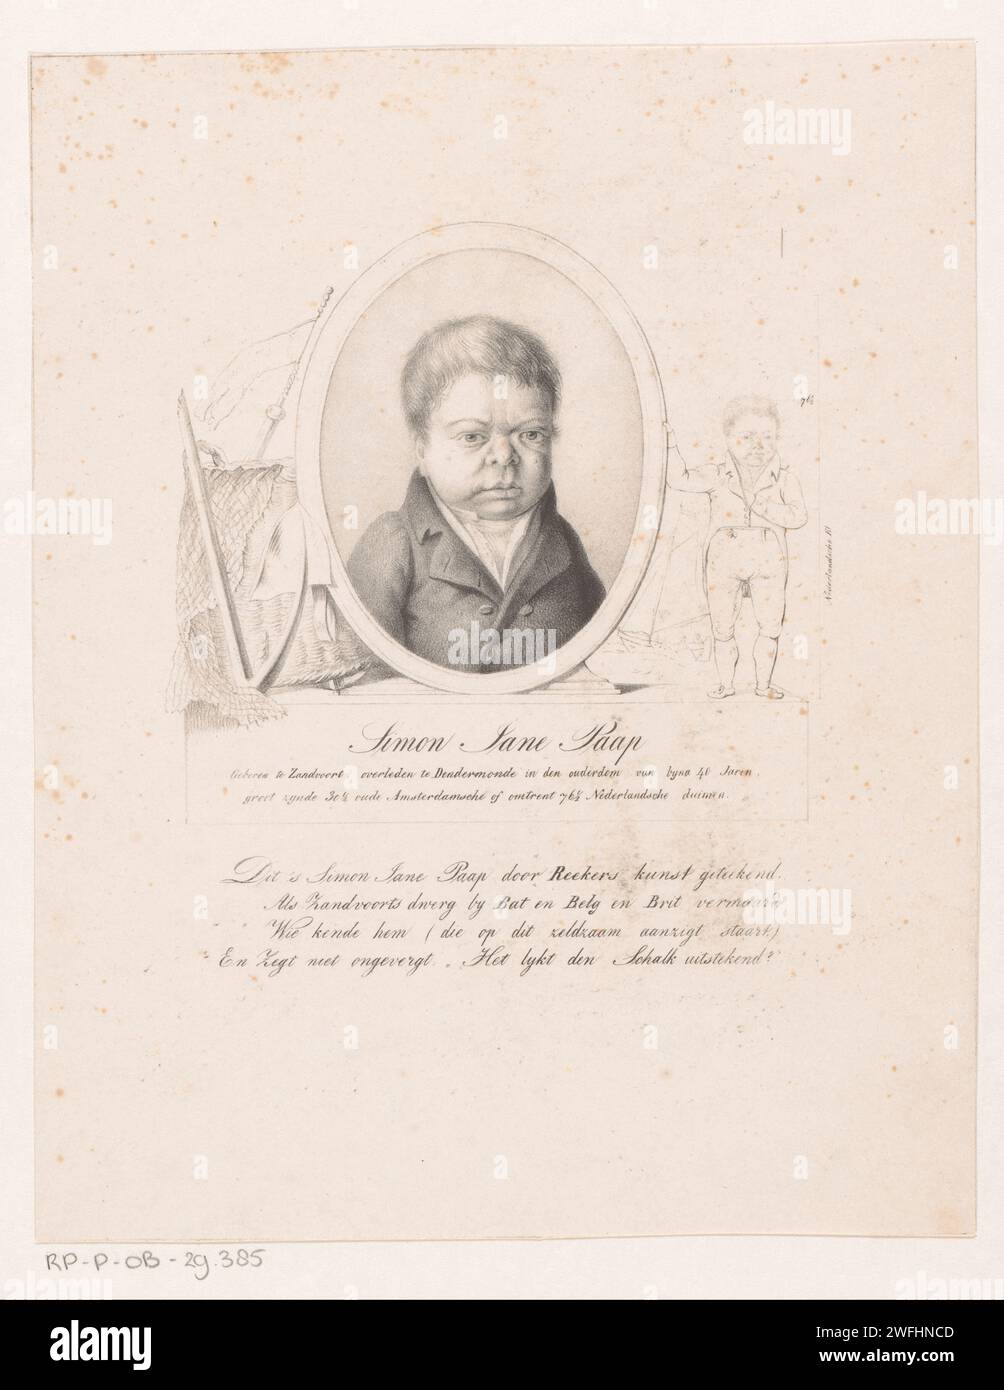 alamy
76½
Nederlandsche El
Simon Jane Paap
Geboren te Zandvoort, overleden te Dendermonde in den ouderdom van byna 40 Jaren,
groot zynde 30½ oude Amsterdamsche of omtrent 76½ Nederlandsche duimen.
Dit 's Simon Jane Paap door Reekers kunst geteekend.
Als Zandvoorts dwerg by Bat en Belg en Brit vermaard
Wie kende hem (die op dit zeldzaam aanzigt staart)
En Zegt niet ongevergt. „Het lykt den Schalk uitstekend?
RP-P-OB-29.385
alamy
Image ID: 2WFHNCD
www.alamy.com